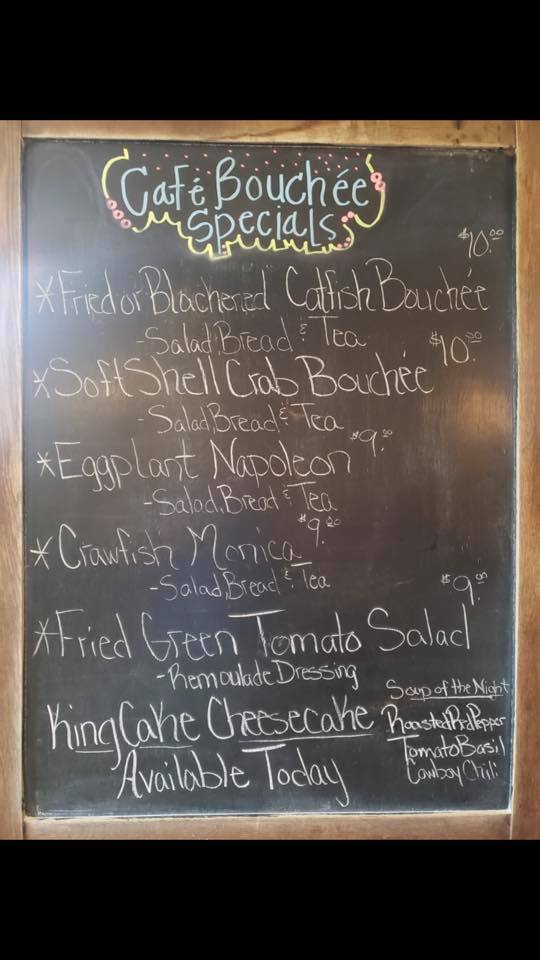 Café Bouchée
Specials
$10.00
*Fried or Blackened Catfish Bouchée
-Salad, Bread & Tea
$10.00
*Soft Shell Crab Bouchée
-Salad, Bread & Tea
*Eggplant Napoleon $9.00
-Salad, Bread & Tea
*Crawfish Monica $9.00
-Salad, Bread & Tea
$9.00
*Fried Green Tomato Salad
-Remoulade Dressing
King Cake Cheesecake
Available Today
Soup of the Night
Roasted Red Pepper
Tomato Basil
Cowboy Chili